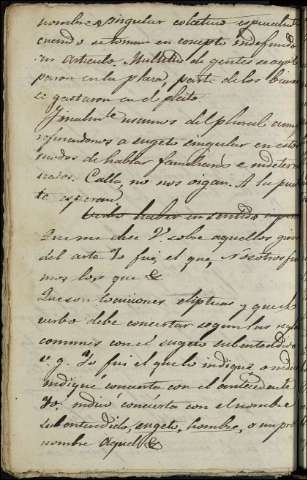 nombre singular colectivo, especialm
cuando se toma en concepto indefinido
sin articulo. Multitud de gentes se agol
paron en la plaza, parte de los bienes
se gastaron en el pleito
Igualmte usamos del plural aunq
refiriendonos a sugeto singular en esto
modos de hablar familiares e indeter
nados. Calla, no nos oigan. A la puer
ta esperan
Verbo haber en sentido
Que me dice V. sobre aquellos gir
del arte Yo fui el que, nosotros fui
mos los que &
Que son locuciones elipticas y que el
verbo debe concertar segun las reglas
comunes con el sugeto subentendido
v. g. Yo fui el que lo indiqué o indicó
indiqué concierta con el antecedente
Yo, indicó concierta con el nombre
subentendido, sugeto, hombre, o un pro
nombre aquel &